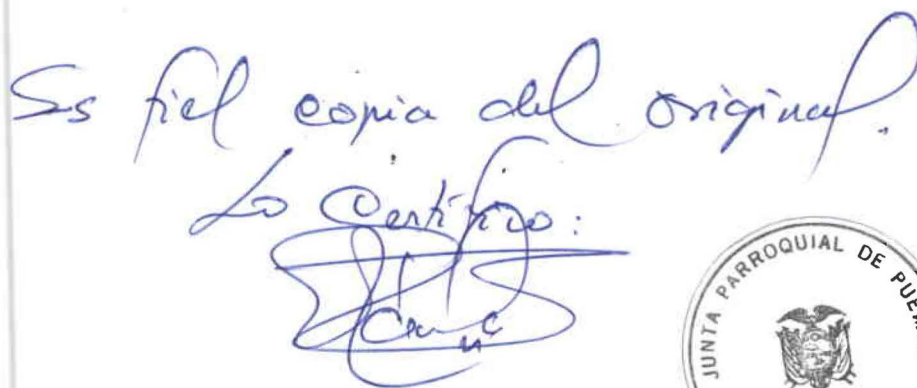 Es fiel copia del original.
Lo Certifico:
JUNTA PARROQUIAL DE